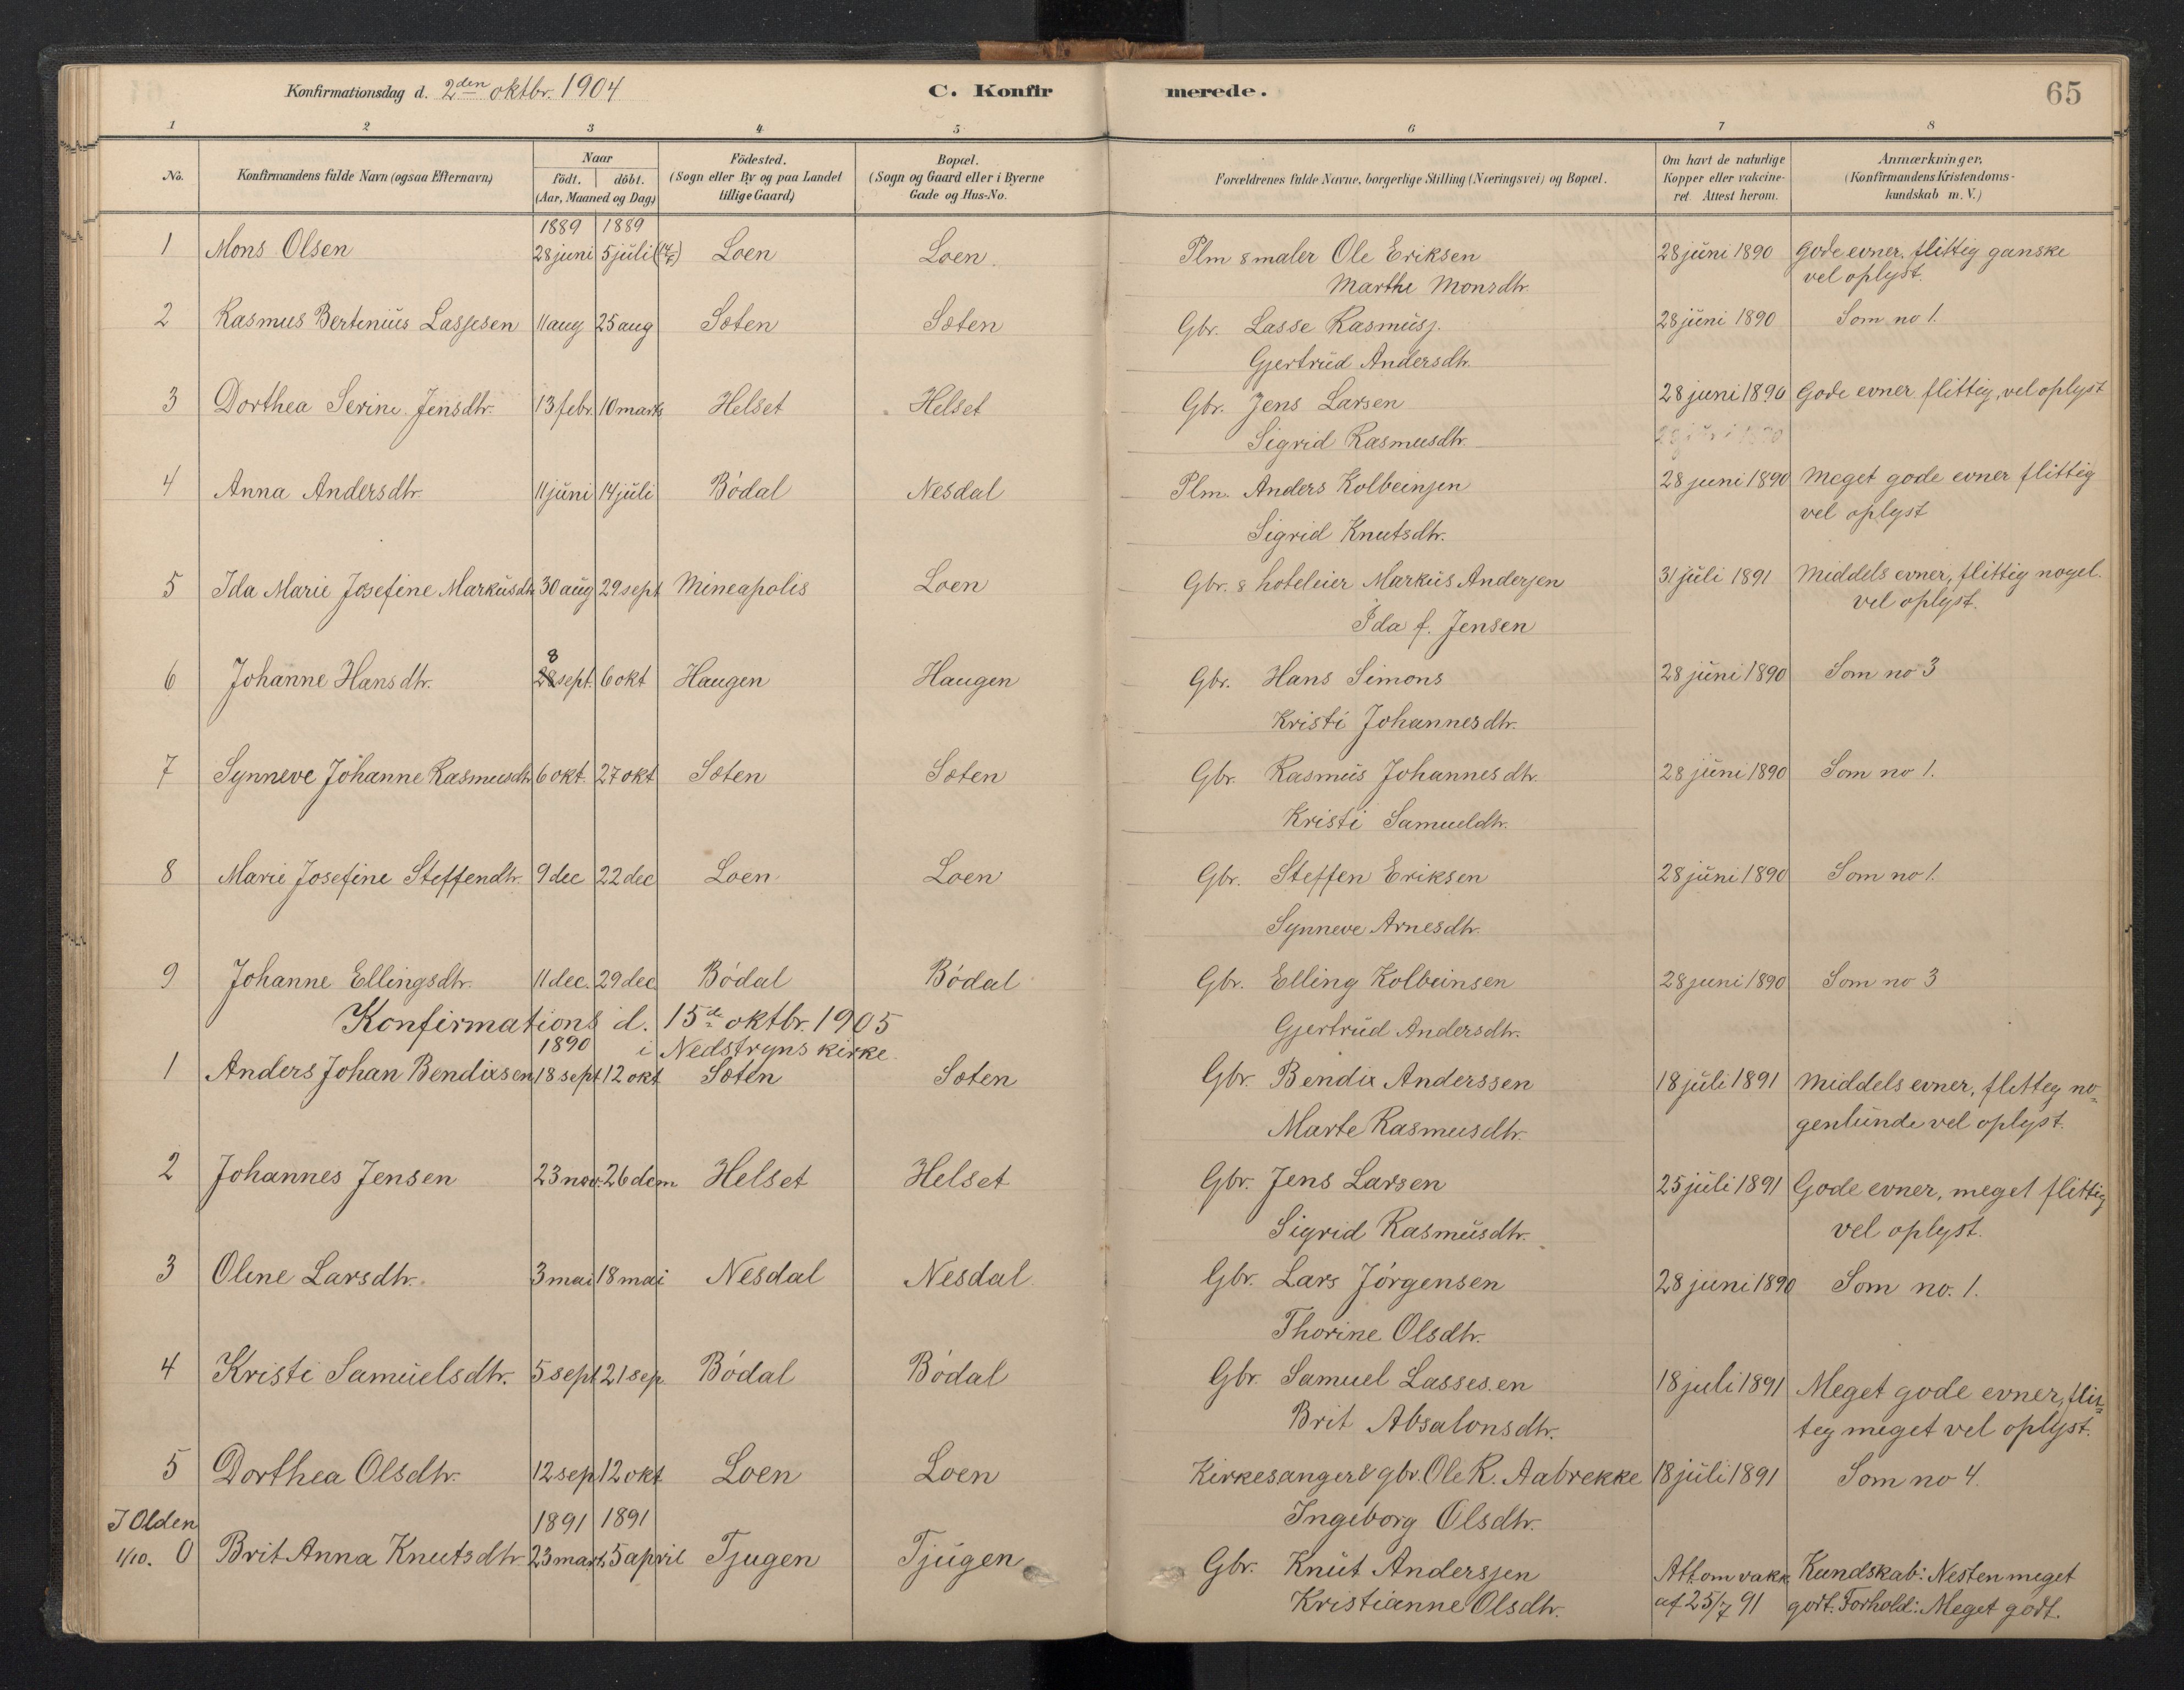 Konfirmationsdag d. 2den oktbr. 1904 C. Konfirmerede. 65
1 2 3 4 5 6 7 8
No. Konfirmandens fulde Navn (ogsaa Efternavn) Naar födt. döbt. (Aar, Maaned og Dag) Födested. (Sogn eller By og paa Landet tillige Gaard) Bopæl. (Sogn og Gaard eller i Byerne Gade og Hus-No. Forældrenes fulde Navne, borgerlige Stilling (Næringsvei) og Bopæl. Om havt de naturlige Kopper eller vakcineret. Attest herom. Anmærkninger. (Konfirmandens Kristendomskundskab m. V.)
1889 1889
1 Mons Olsen 28 juni 5 juli Loen Loen. Plm & maler Ole Eriksen 28 juni 1890 Gode evner, flittig ganske
Marthe Monsdtr. vel oplyst.
2 Rasmus Bertinius Lassesen 11 aug 25 aug Sæten Sæten Gbr. Lasse Rasmuss. 28 juni 1890 Som no 1.
Gjertrud Andersdtr.
3 Dorthea Serine Jensdtr. 13 febr. 10 marts Helset Helset Gbr. Jens Larsen 28 juni 1890 Gode evner flittig, vel oplyst
Sigrid Rasmusdtr.
4 Anna Andersdtr. 11 juni 14 juli Bödal Nesdal Plm. Anders Kolbeinsen 28 juni 1890 Meget gode evner flittig
Sigrid Knutsdtr. vel oplyst
5 Ida Marie Josefine Markusdtr 30 aug 29 sept Mineapolis Loen Gbr. & hoteleier Markus Andersen 31 juli 1891 Middels evner, flittig nogel.
Ida f. Jensen vel oplyst.
8
6 Johanne Hansdtr. 28 sept. 6 okt Haugen Haugen Gbr. Hans Simons 28 juni 1890 Som no 3
Kristi Johannesdtr.
7 Synneve Johanne Rasmusdtr 6 okt. 27 okt Sæten Sæten Gbr. Rasmus Johannesdtr. 28 juni 1890 Som no 1.
Kristi Samueldtr.
8 Marie Josefine Steffendtr. 9 dec 22 dec Loen Loen Gbr. Steffen Eriksen 28 juni 1890 Som no 1.
Synneve Arnesdtr.
9 Johanne Ellingsdtr. 11 dec. 29 dec Bödal Bödal Gbr. Elling Kolbeinsen 28 juni 1890 Som no 3
Gjertrud Andersdtr.
Konfirmations d. 15de oktbr. 1905
1890 i Nedstryns kirke.
1 Anders Johan Bendixsen 18 sept 12 okt Sæten Sæten Gbr. Bendix Anderssen 18 juli 1891 Middels evner, flitteg no-
Marte Rasmusdtr. genlunde vel oplyst.
2 Johannes Jensen 23 nov. 26 dem Helset Helset Gbr. Jens Larsen 25 juli 1891 Gode evner, meget flittig
Sigrid Rasmusdtr. vel oplyst.
3 Oline Larsdtr. 3 mai 18 mai Nesdal Nesdal Gbr. Lars Jörgensen 28 juni 1890 Som no. 1.
Thorine Olsdtr.
4 Kristi Samuelsdtr. 5 sept 21 sep. Bödal Bödal Gbr. Samuel Lassesen 18 juli 1891 Meget gode evner, flit-
Brit Absalonsdtr. teg meget vel oplyst.
5 Dorthea Olsdtr. 12 sep 12 okt Loen Loen Kirkesanger & gbr. Ole R. Aabrekke 18 juli 1891 Som no 4.
Ingeborg Olsdtr.
I Olden 1891 1891
1/10. 0 Brit Anna Knutsdtr 23 mart. 5 april Tjugen Tjugen Gbr. Knut Anderssen Att. om vakk. Kundskab: Nesten meget
Kristianne Olsdtr. af 25/7 91 godt. Forhold: Meget godt.